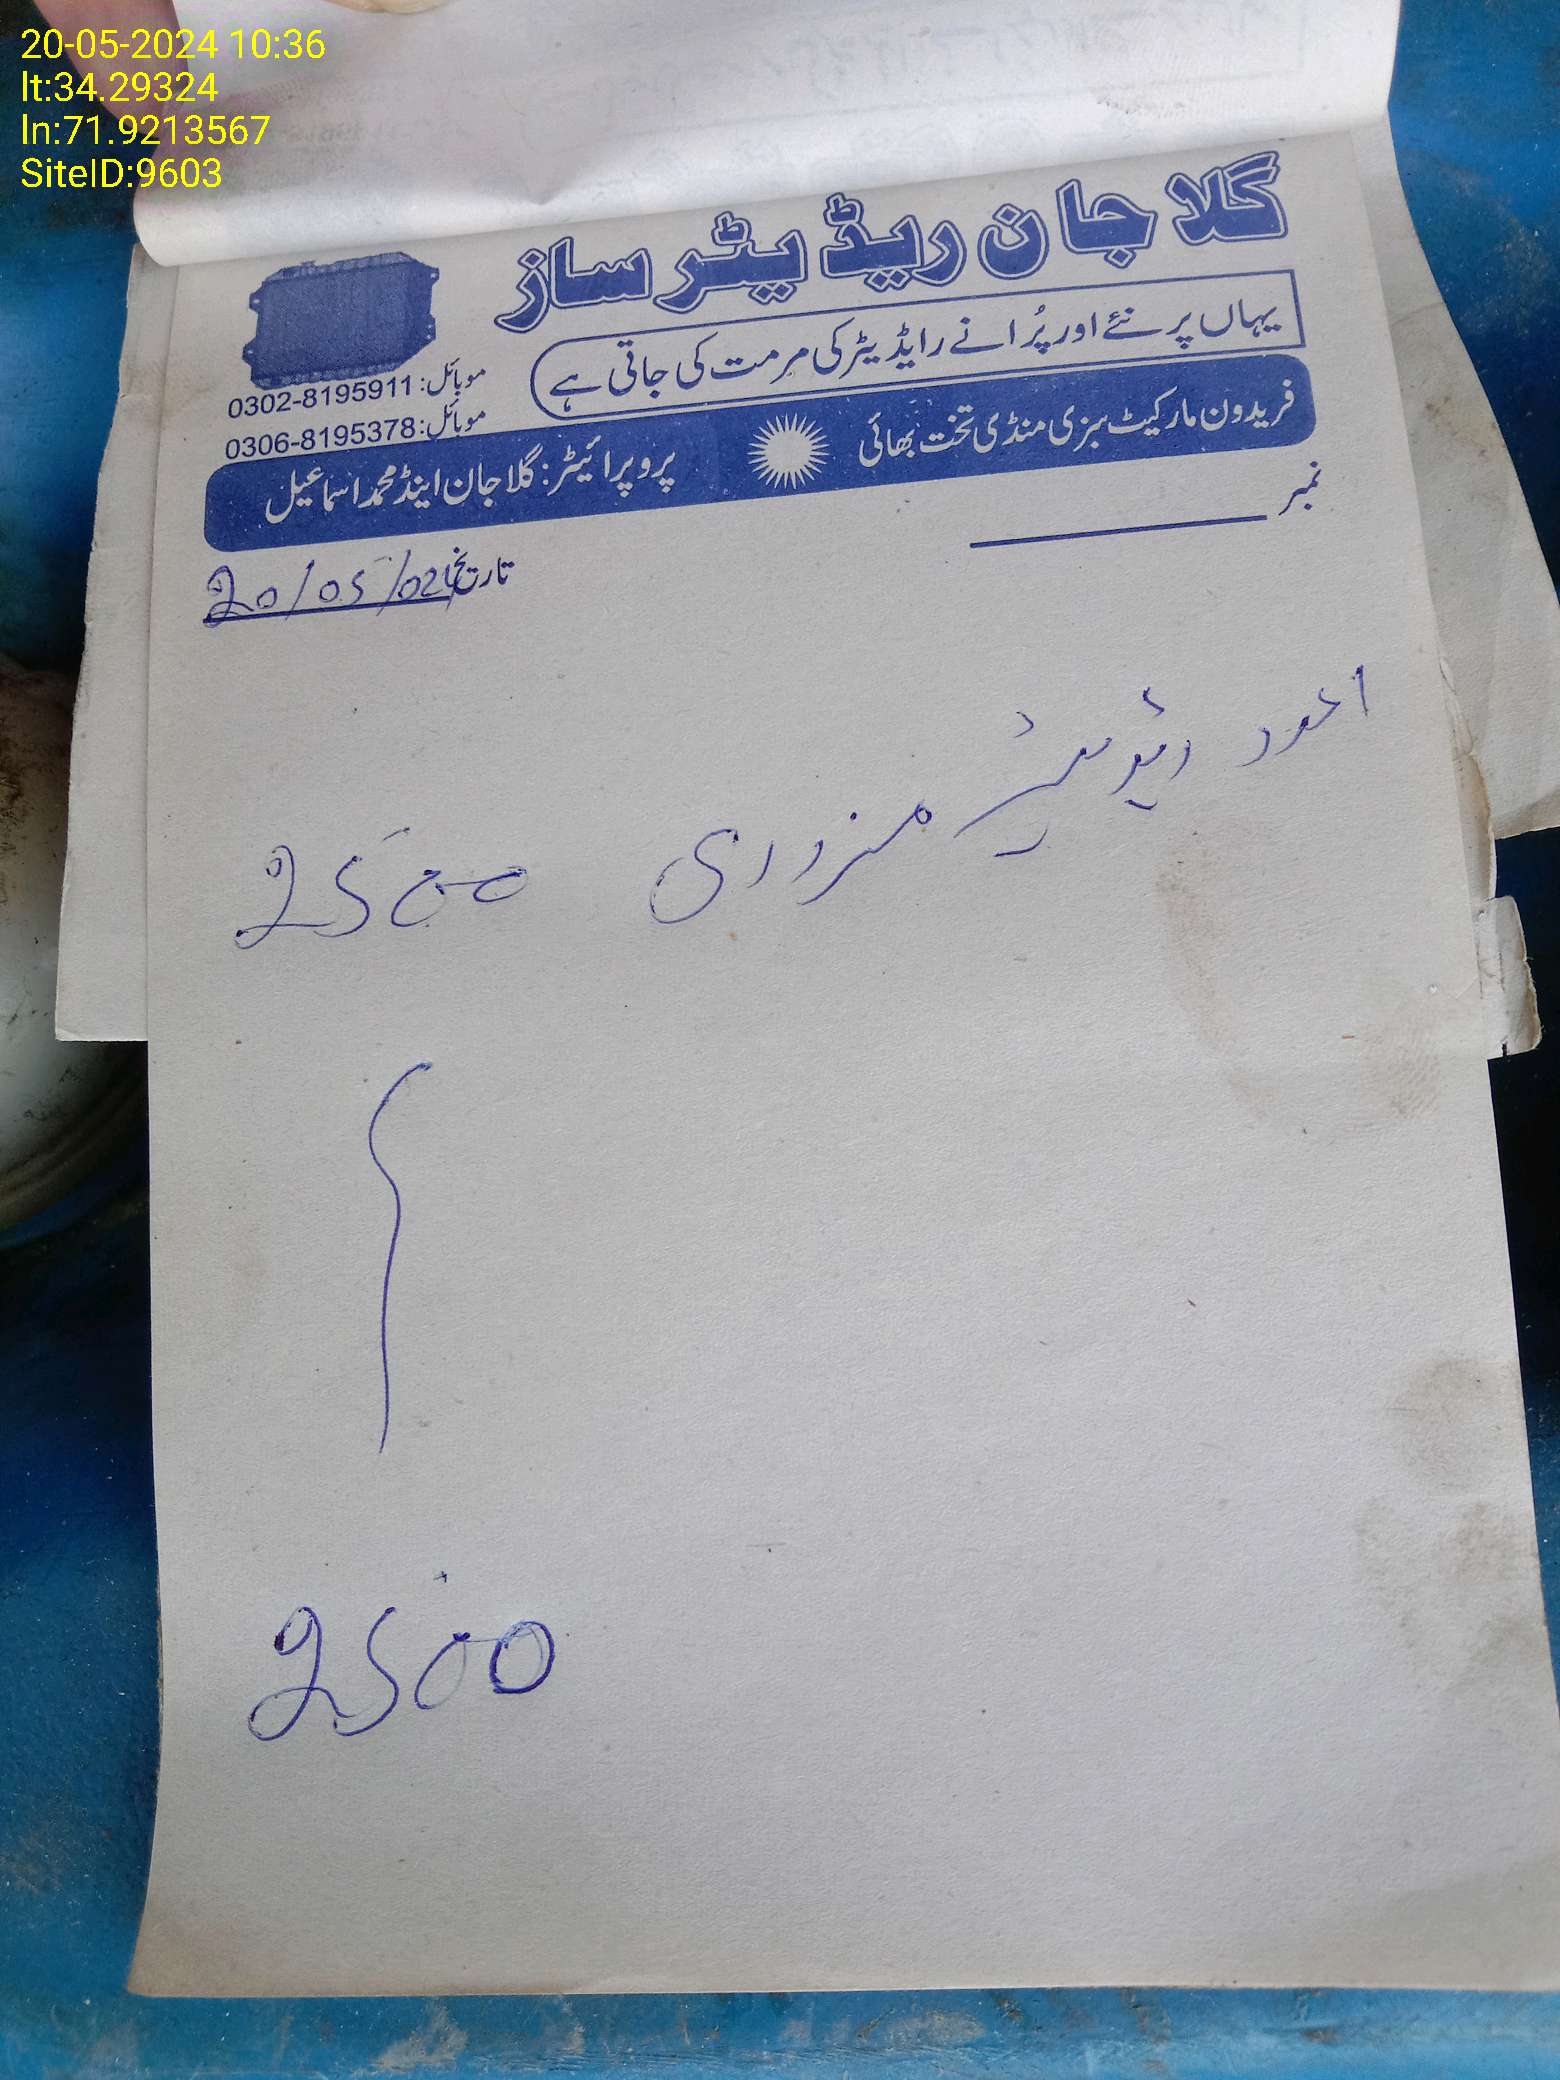 20-05-2024 10:36
lt:34.29324
ln:71.9213567
SiteID:9603
گلا جان ریڈیٹر ساز
یہاں پر نئے اور پُرانے رایڈیٹر کی مرمت کی جاتی ہے
موبائل: 0302-8195911
موبائل: 0306-8195378
فریدون مارکیٹ سبزی منڈی تخت بھائی
پروپرائیٹر: گلا جان اینڈ محمد اسماعیل
نمبر
تاریخ 20/05/024
1 عدد ریڈیٹر مزدوری 2500
2500